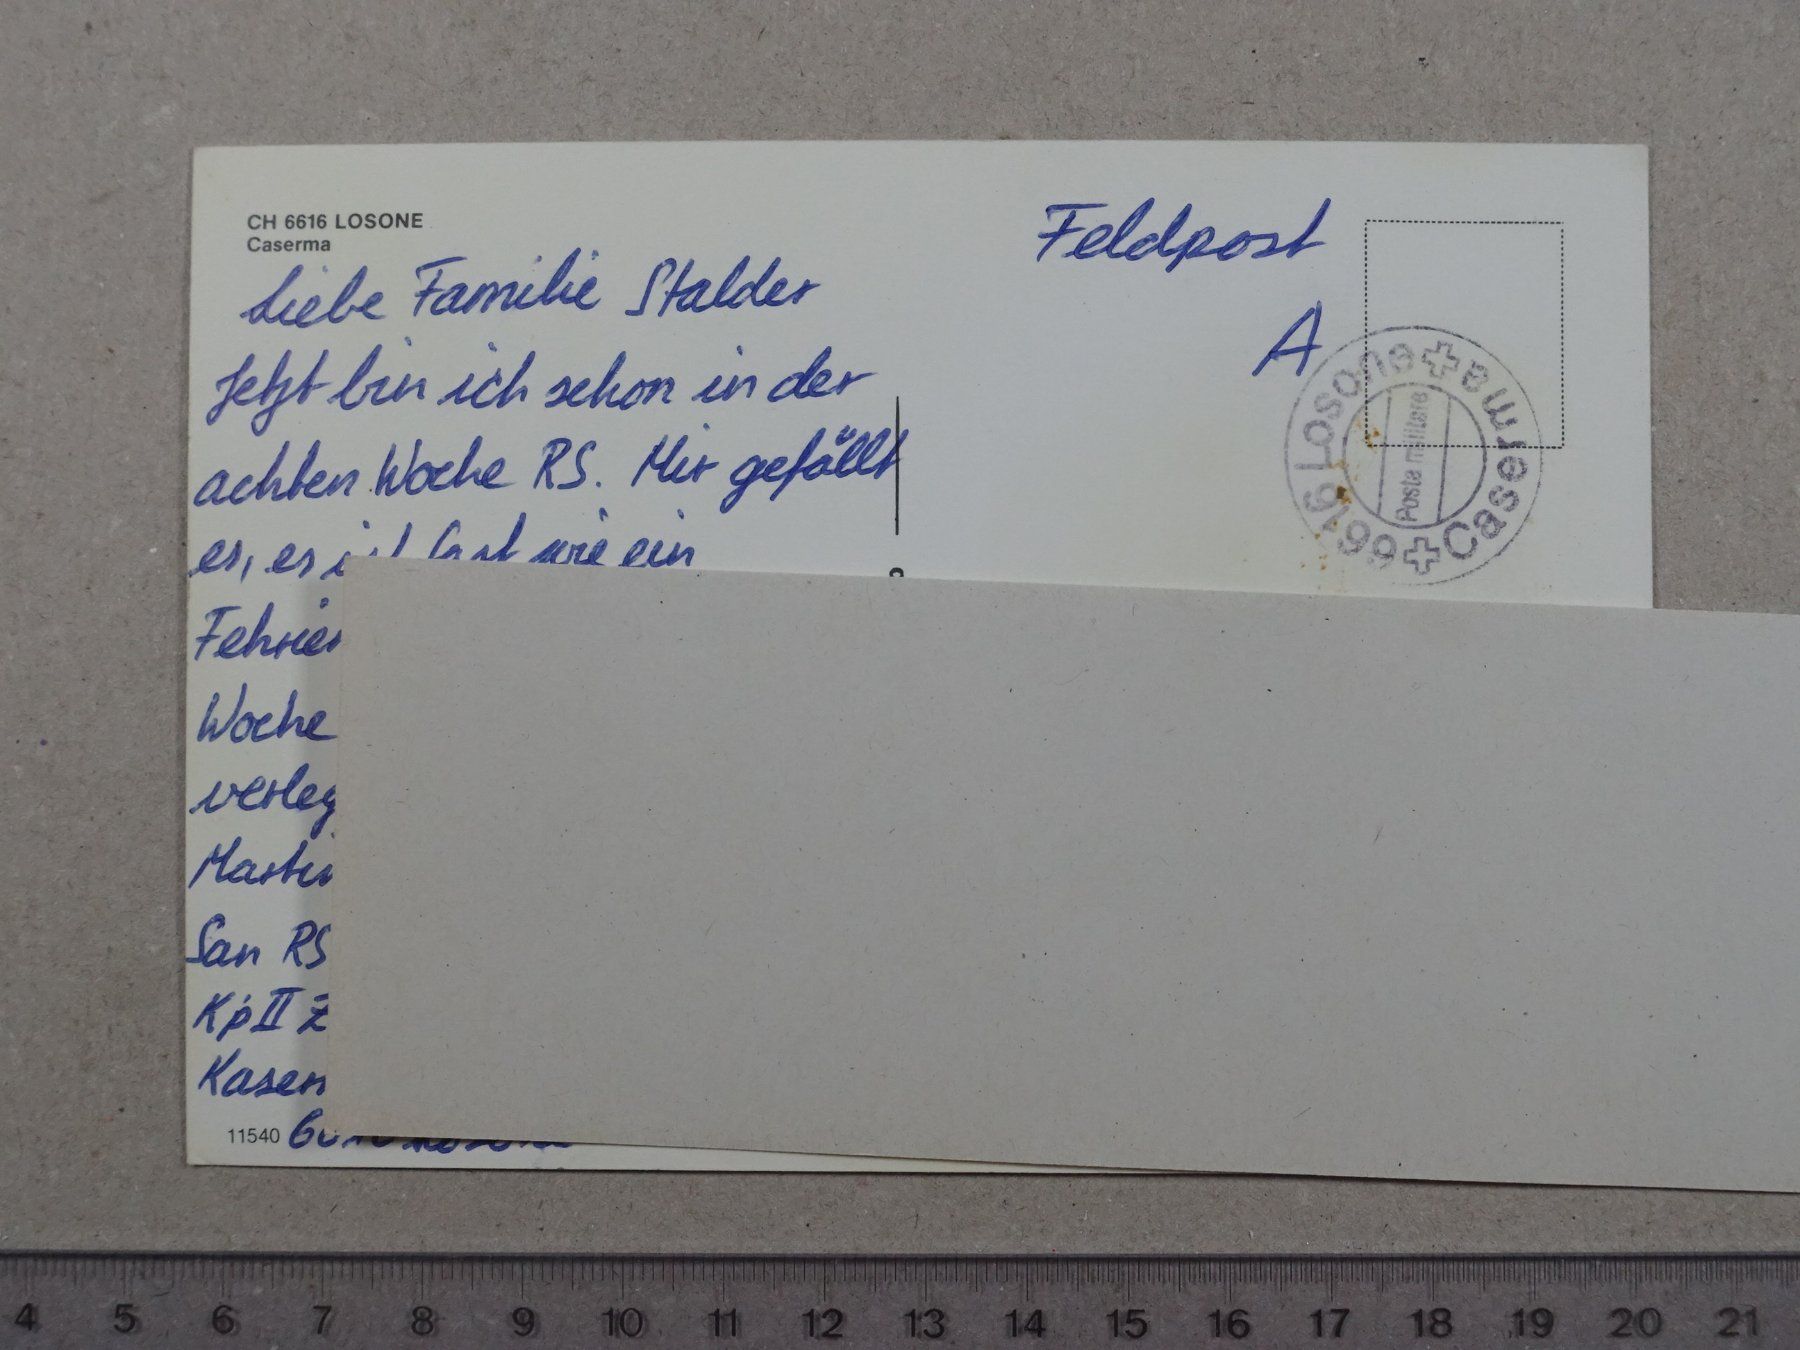 CH 6616 LOSONE
Caserma
Liebe Familie Stalder
Jetzt bin ich schon in der
achten Woche RS. Mir gefällt
es, es ist fast wie ein
Woche
San RS
Kp II
11540
Feldpost
A
6616 Losone Caserma
Posta militare
4 5 6 7 8 9 10 11 12 13 14 15 16 17 18 19 20 21